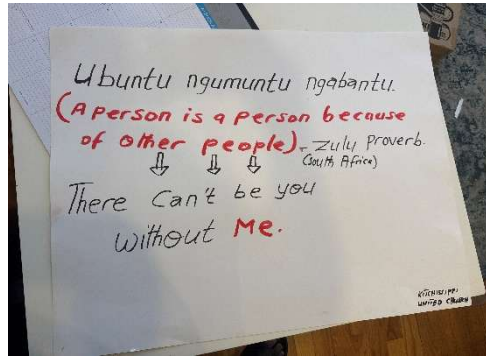 Ubuntu ngumuntu ngabantu.
(A person is a person because
of other people) - Zulu Proverb.
(South Africa)
There Can't be you
without Me.
KITCHISSIPPI
UNITED CHURCH